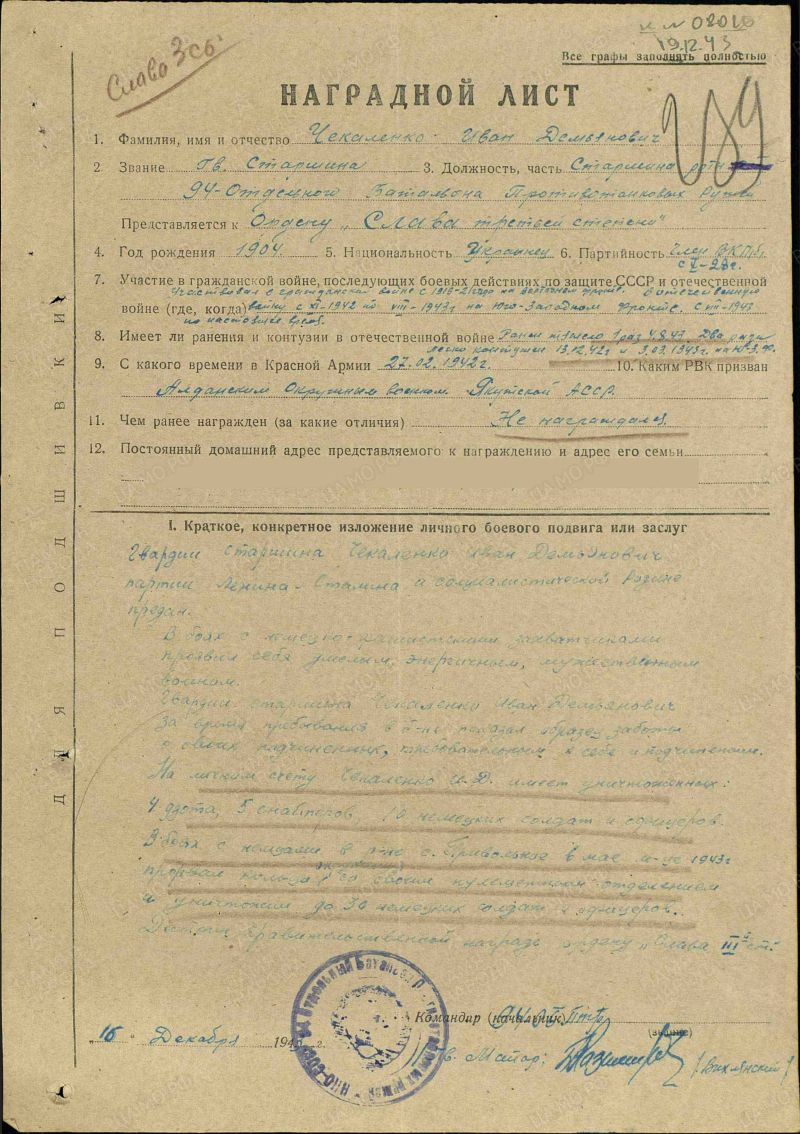 Слава 3 ст.
19.12.43
Все графы заполнять полностью
НАГРАДНОЙ ЛИСТ
1. Фамилия, имя и отчество Чекаленко Иван Демьянович
2 Звание гв. Старшина 3. Должность, часть Старшина роты
94-Отдельного Батальона Противотанковых Ружей
Представляется к Ордену „Слава третьей степени"
4. Год рождения 1904. 5. Национальность Украинец 6. Партийность Член ВКП/б/
7. Участие в гражданской войне, последующих боевых действиях по защите СССР и отечественной
Участвовал в гражданской войне с на восточном фронте. В отечественную
войне (где, когда) войну с XI-1942 по VIII-1943г на Юго-Западном Фронте. с VIII-1943
по настоящее время.
8. Имеет ли ранения и контузии в отечественной войне Ранен тяжело 1 раз 4.8.43. Два раза
легко контужен 13.12.42г и 3.03.1943г. на Ю.З.Ф.
9. С какого времени в Красной Армии 27.02.1942г. 10. Каким РВК призван
Алданским Окружным военком. Якутской АССР.
11. Чем ранее награжден (за какие отличия) Не награждался
12. Постоянный домашний адрес представляемого к награждению и адрес его семьи
ДЛЯ ПОДШИВКИ
I. Краткое, конкретное изложение личного боевого подвига или заслуг
Гвардии старшина Чекаленко Иван Демьянович
партии Ленина-Сталина и социалистической Родине
предан.
В боях с немецко-фашистскими захватчиками
проявил себя умелым, энергичным, мужественным
воином.
Гвардии старшина Чекаленко Иван Демьянович
за время пребывания в б-не показал образец заботы
о своих подчиненных, требовательным к себе и подчиненным.
На личном счету Чекаленко И.Д. имеет уничтоженных:
4 дзота, 5 снайперов, 10 немецких солдат и офицеров.
В боях с немцами в р-не с. Привольное в мае м-це 1943г
прорвал кольцо окружения со своим пулеметным отделением
и уничтожил до 30 немецких солдат и офицеров.
Достоин Правительственной награды ордену „Слава III й ст.
Командир (начальник)
(звание)
„16 " Декабря 194 г.
Гв. Майор: /Вихлянский/